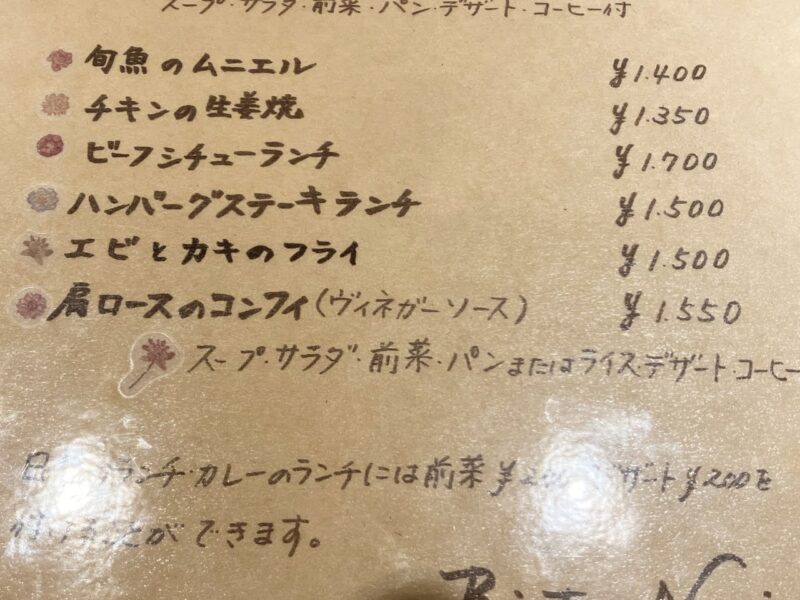 スープ・サラダ・前菜・パン・デザート・コーヒー付
旬魚のムニエル ¥1.400
チキンの生姜焼 ¥1.350
ビーフシチューランチ ¥1.700
ハンバーグステーキランチ ¥1.500
エビとカキのフライ ¥1.500
肩ロースのコンフィ(ヴィネガーソース) ¥1.550
スープ・サラダ・前菜・パンまたはライス・デザート・コーヒー
ランチ・カレーのランチには前菜 デザート¥200を
付けることができます。